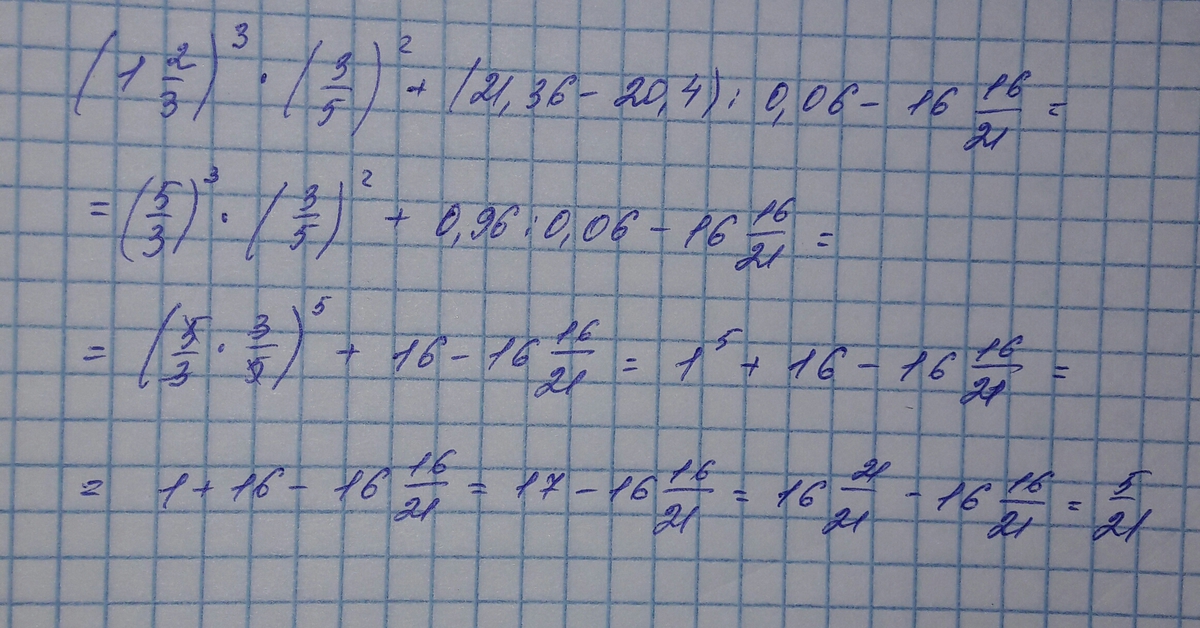 (1 2/3)³ · (3/5)² + (21,36 − 20,4) : 0,06 − 16 16/21 =
= (5/3)³ · (3/5)² + 0,96 : 0,06 − 16 16/21 =
= (5/3 · 3/5)⁵ + 16 − 16 16/21 = 1⁵ + 16 − 16 16/21 =
= 1 + 16 − 16 16/21 = 17 − 16 16/21 = 16 21/21 − 16 16/21 = 5/21